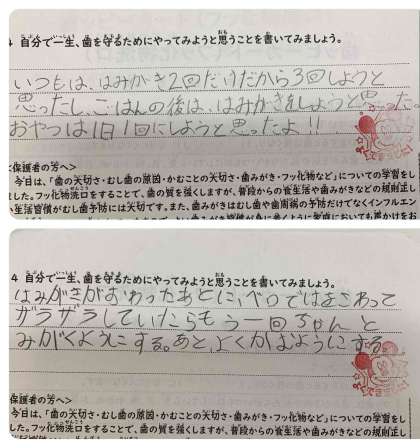 4 自分で一生、歯を守るためにやってみようと思うことを書いてみましょう。
いつもは、はみがき2回だけだから3回しようと
思ったし、ごはんの後は、はみがきをしようと思った
おやつは1日1回にしようと思ったよ!!
<保護者の方へ>
今日は、「歯の大切さ・むし歯の原因・かむことの大切さ・歯みがき・フッ化物など」についての学習をし
ました。フッ化物洗口をすることで、歯の質を強くしますが、普段からの食生活や歯みがきなどの規則正し
い生活習慣がむし歯予防には大切です。また、歯みがきはむし歯や歯周病の予防だけでなくインフルエン
4 自分で一生、歯を守るためにやってみようと思うことを書いてみましょう。
はみがきがおわったあとに、ベロではをさわって
ザラザラしていたらもう一回ちゃんと
みがくようにする。あと、よくかむようにする。
保護者の方へ>
今日は、「歯の大切さ・むし歯の原因・かむことの大切さ・歯みがき・フッ化物など」についての学習をし
した。フッ化物洗口をすることで、歯の質を強くしますが、普段からの食生活や歯みがきなどの規則正し